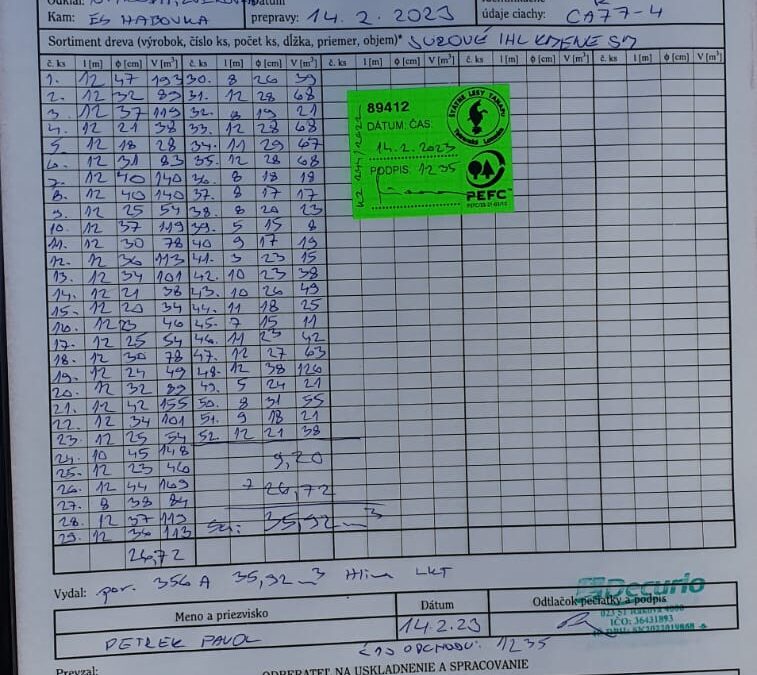 Kam: ES HABOVKA prepravy: 14.2.2023 údaje ciachy: CA77-4
Sortiment dreva (výrobok, číslo ks, počet ks, dĺžka, priemer, objem)* SUROVÉ IHL KMENE SM
č. ks l [m] ϕ [cm] V [m³] č. ks l [m] ϕ [cm] V [m³] č. ks l [m] ϕ [cm] V [m³] č. ks l [m] ϕ [cm] V [m³]
1. 12 47 193 30. 8 26 39
2. 12 32 89 31. 12 28 68
3. 12 37 119 32. 8 19 21
4. 12 21 38 33. 12 28 68
5. 12 18 28 34. 11 29 67
6. 12 31 83 35. 12 28 68
7. 12 40 140 36. 8 18 18
8. 12 40 140 37. 8 17 17
9. 12 25 54 38. 8 20 23
10. 12 37 119 39. 5 15 8
11. 12 30 78 40 9 17 19
12. 12 36 113 41. 3 23 15
13. 12 34 101 42. 10 23 38
14. 12 21 38 43. 10 26 49
15. 12 20 34 44. 11 18 25
16. 12 23 46 45. 7 15 11
17. 12 25 54 46. 11 23 42
18. 12 30 78 47. 12 27 63
19. 12 24 49 48. 12 38 126
20. 12 32 89 49. 5 24 21
21. 12 42 155 50. 8 31 55
22. 12 34 101 51. 9 18 21
23. 12 25 54 52. 12 21 38
24. 10 45 148
25. 12 23 46 9,20
26. 12 44 169 26,72
27. 8 38 84
28. 12 37 119 35,92 m3
29. 12 36 113
26,72
89412
ŠTÁTNE LESY TANAPU
Tatranská Lomnica
DÁTUM: ČAS:
14.2.2023
PODPIS: 1235
PEFC™
Vydal: por. 356 A 35,92 m3 Hlina LKT
Meno a priezvisko Dátum Odtlačok pečiatky a podpis
PETREK PAVOL 14.2.23
Decurio
023 51 Raková 4000
IČO: 36431893
ČAS ODCHODU: 1235
Prevzal: ODBERATEĽ NA USKLADNENIE A SPRACOVANIE